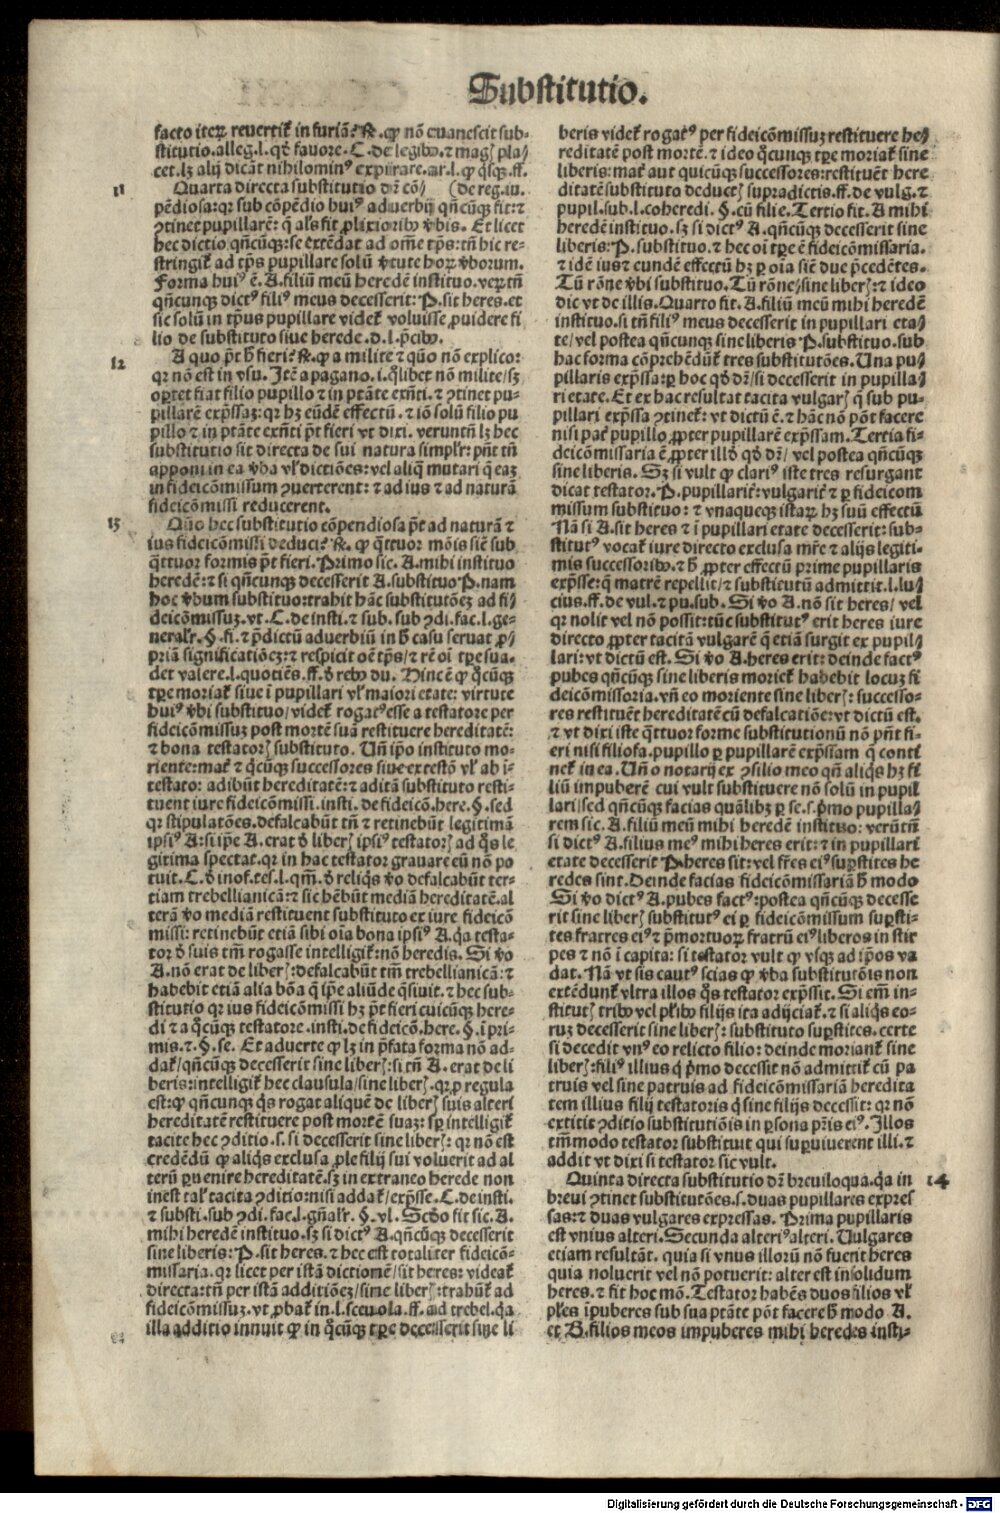 Substitutio.
facto iteꝝ revertit̃ in furiã? ℞. ꝙ nõ euanescit sub-
stitutio. alleg. l. qđ fauore. C. de legibꝰ. ⁊ magꝭ pla
cet. lꝫ alij dicãt nihilominꝰ expirare. ar. l. ꝙ qͥsqꝫ. ff.
11 Quarta directa substitutio dr̃ cõ- (de reg. iu.
pẽdiosa: qꝛ sub cõpẽdio huiꝰ aduerbij qñcũqꝫ fit: ⁊
ꝯtinet pupillarẽ: q̃ al's fit ꝓlixioribꝰ ꝟbis. Et licet
hec dictio qñcũqꝫ: se extẽdat ad om̃e tp̃s: tñ hic re-
stringit̃ ad tp̃s pupillare solũ ꝟtute hoꝝ ꝟborum.
Forma huiꝰ ẽ. A. filiũ meũ heredẽ instituo. veꝝtñ
qñcunqꝫ dictꝰ filiꝰ meus decesserit: P. sit heres. et
sic solũ in tp̃us pupillare videt̃ voluisse ꝓuidere fi
lio de substituto siue herede. d. l. p̃cibꝰ.
12 A quo p̃t ħ fieri? ℞. ꝙ a milite ⁊ quõ nõ explico:
qꝛ nõ est in vsu. Itẽ a pagano. i. qͥlibet nõ milite/ sꝫ
oꝑtet fiat filio pupillo ⁊ in ptãte exñti. ⁊ ꝯtinet pu-
pillarẽ exp̃ssaꝫ: qꝛ hꝫ eũdẽ effectũ. ⁊ iõ solũ filio pu
pillo ⁊ in ptãte exñti p̃t fieri vt dixi. veruntñ lꝫ hec
substitutio sit directa de sui natura simpl'r: pñt tñ
apponi in ea ꝟba vl' dictiões: vel aliqͣ mutari q̃ eaꝫ
in fideicõmissum ꝯuerterent: ⁊ ad ius ⁊ ad naturã
fideicõmissi reducerent.
13 Quõ hec substitutio cõpendiosa p̃t ad naturã ⁊
ius fideicõmissi deduci? ℞. ꝙ qͣttuor mõis siẽ sub
qͣttuor formis p̃t fieri. Primo sic. A. mihi instituo
heredẽ: ⁊ si qñcunqꝫ decesserit A. substituo P. nam
hoc ꝟbum substituo: trahit hãc substitutõeꝫ ad fi-
deicõmissuꝫ. vt. C. de insti. ⁊ sub. sub ꝯdi. fac. l. ge-
neral'r. §. fi. ⁊ p̃dictũ aduerbiũ in ħ casu seruat ꝓ-
priã significatiõeꝫ: ⁊ respicit oẽ tp̃s/ ⁊ rẽ oĩ tꝑe sua.
det valere. l. quotiẽs. ff. đ rebꝰ du. Hinc ẽ ꝙ qͥcũqꝫ
tꝑe moriat̃ siue ĩ pupillari vl' maiori etate: virtute
huiꝰ ꝟbi substituo/ videt̃ rogatꝰ esse a testatore per
fideicõmissuꝫ post mortẽ suã restituere hereditatẽ:
⁊ bona testatorꝭ substituto. Uñ ip̃o instituto mo-
riente: mat̃ ⁊ qͥcũqꝫ successores siue ex testõ vl' ab ĩ-
testato: adibũt hereditatẽ: ⁊ aditã substituto resti-
tuent iure fideicõmissi. insti. de fideicõ. here. §. sed
qꝛ stipulatões. defalcabũt tñ ⁊ retinebũt legitimã
ipsiꝰ A: si ip̃e A. erat đ liberꝭ ipsiꝰ testatorꝭ ad qͦs le
gitima spectat. qꝛ in hac testator grauare eũ nõ po
tuit. C. đ inof. tes. l. qm̃. đ reliqͥs ꝟo defalcabũt ter-
tiam trebellianicã: ⁊ sic hẽbũt mediã hereditatẽ. al
terã ꝟo mediã restituent substituto ex iure fideicõ
missi: retinebũt etiã sibi oĩa bona ipsiꝰ A. qꝛ testa-
tor đ suis tm̃ rogasse intelligit̃: nõ heredis. Si ꝟo
A. nõ erat de liberꝭ: defalcabũt tm̃ trebellianicã: ⁊
habebit etiã alia bõa q̃ ip̃e aliũde qͥsiuit. ⁊ hec sub-
stitutio qꝛ ius fideicõmissi hꝫ p̃t fieri cuicũqꝫ here-
di ⁊ a qͥcũqꝫ testatore. insti. de fideicõ. here. §. ĩ pri-
mis. ⁊. §. se. Et aduerte ꝙ lꝫ in p̃fata forma nõ ad-
dat̃/ qñcũqꝫ decesserit sine liberꝭ: si tñ A. erat de li
beris: intelligit̃ hec clausula/ sine liberꝭ. qꝛ ꝓ regula
est: ꝙ qñcunqꝫ qͥs rogat aliquẽ de liberꝭ suis alteri
hereditatẽ restituere post mortẽ suaꝫ: sꝑ intelligit̃
tacite hec ꝯditio. s. si decesserit sine liberꝭ: qꝛ nõ est
credẽdũ ꝙ aliqͥs exclusa ꝓle filij sui voluerit ad al
terũ ꝑuenire hereditatẽ. sꝫ in extraneo herede non
inest tal' tacita ꝯditio: nisi addat̃/ exp̃sse. C. de insti.
⁊ substi. sub ꝯdi. fac. l. gñal'r. §. vl. Scđo fit sic. A.
mihi heredẽ instituo. sꝫ si dictꝰ A. qñcũqꝫ decesserit
sine liberis: P. sit heres. ⁊ hec est totaliter fideicõ-
missaria. qꝛ licet per istã dictionẽ/ sit heres: videat̃
directa: tñ per istã additiõeꝫ/ sine liberꝭ: trahũt̃ ad
fideicõmissuꝫ. vt ꝓbat̃ in. l. sceuola. ff. ad trebel. qꝛ
illa additio innuit ꝙ in qͥcũqꝫ tꝑe decesserit sine li
beris videt̃ rogatꝰ per fideicõmissuꝫ restituere he-
reditatẽ post mortẽ. ⁊ ideo qͥcunqꝫ tꝑe moriat̃ sine
liberis: mat̃ aut quicũqꝫ successores: restituẽt here
ditatẽ substituto deductꝭ supradictis. ff. de vulg. ⁊
pupil. sub. l. coheredi. §. cũ filie. Tertio fit. A mihi
heredẽ instituo. sꝫ si dictꝰ A. qñcũqꝫ decesserit sine
liberis: P. substituo. ⁊ hec oĩ tꝑe ẽ fideicõmissaria.
⁊ idẽ ius ⁊ eundẽ effectũ hꝫ ꝑ oĩa siẽ due p̃cedẽtes.
Tũ rõne ꝟbi substituo. Tũ rõne/ sine liberꝭ: ⁊ ideo
dic vt de illis. Quarto fit. A. filiũ meũ mihi heredẽ
instituo. si tñ filiꝰ meus decesserit in pupillari eta-
te/ vel postea qñcunqꝫ sine liberis P. substituo. sub
hac forma cõprehẽdũt̃ tres substitutões. Una pu-
pillaris exp̃ssa: ꝑ hoc qđ dr̃/ si decesserit in pupilla-
ri etate. Et ex hac resultat tacita vulgarꝭ q̃ sub pu-
pillari exp̃ssa ꝯtinet̃: vt dictũ ẽ. ⁊ hãc nõ põt facere
nisi pat̃ pupillo ꝓpter pupillarẽ exp̃ssam. Tertia fi-
deicõmissaria ẽ ꝓpter illđ qđ dr̃/ vel postea qñcũqꝫ
sine liberis. Sꝫ si vult ꝙ clariꝰ iste tres resurgant
dicat testator. P. pupillarit̃: vulgarit̃ ⁊ ꝑ fideicom
missum substituo: ⁊ vnaqueqꝫ istaꝝ hꝫ suũ effectũ
Nã si A. sit heres ⁊ ĩ pupillari etate decesserit: sub-
stitutꝰ vocat̃ iure directo exclusa mr̃e ⁊ alijs legiti-
mis successoribꝰ. ⁊ ħ ꝓpter effectũ prime pupillaris
exp̃sse: q̃ matrẽ repellit/ ⁊ substitutũ admittit. l. lu-
cius. ff. de vul. ⁊ pu. sub. Si ꝟo A. nõ sit heres/ vel
qꝛ nolit vel nõ possit: tũc substitutꝰ erit heres iure
directo ꝓpter tacitã vulgarẽ q̃ etiã surgit ex pupil-
lari: vt dictũ est. Si ꝟo A. heres erit: deinde factꝰ
pubes qñcũqꝫ sine liberis moriet̃ habebit locuꝫ fi
deicõmissoria. vñ eo moriente sine liberꝭ: successo-
res restituẽt hereditatẽ cũ defalcatiõe: vt dictũ est.
⁊ vt dixi iste qͣttuor forme substitutionũ nõ pñt fi-
eri nisi filiofa. pupillo ꝑ pupillarẽ exp̃ssam q̃ contĩ
net̃ in ea. Uñ o notarij ex ꝯsilio meo qñ aliqͥs hꝫ fi
liũ impuberẽ cui vult substituere nõ solũ in pupil
lari/ sed qñcũqꝫ facias quãlibꝫ ꝑ se. s. p̃mo pupilla-
rem sic. A. filiũ meũ mihi heredẽ instituo: verũtñ
si dictꝰ A. filius meꝰ mihi heres erit: ⁊ in pupillari
etate decesserit P. heres sit: vel fr̃es eiꝰ suꝑstites he
redes sint. Deinde facias fideicõmissariã ħ modo
Si ꝟo dictꝰ A. pubes factꝰ: postea qñcũqꝫ decesse
rit sine liberꝭ substitutꝰ ei ꝑ fideicõmissum suꝑsti-
tes fratres eiꝰ ⁊ p̃mortuoꝝ fratrũ eiꝰ liberos in stir
pes ⁊ nõ ĩ capita: si testator vult ꝙ vsqꝫ ad ip̃os va
dat. Nã vt sis cautꝰ scias ꝙ ꝟba substitutõis non
extẽdunt̃ vltra illos qͦs testator exp̃ssit. Si em̃ in-
stitutꝭ tribꝰ vel pl'ibꝰ filijs ita adijciat̃. ⁊ si aliqͥs eo-
ruꝫ decesserit sine liberꝭ: substituto suꝑstites. certe
si decedit vnꝰ eo relicto filio: deinde moriant̃ sine
liberꝭ: filiꝰ illius qͥ p̃mo decessit nõ admittit̃ cũ pa
truis vel sine patruis ad fideicõmissariã heredita
tem illius filij testatoris qͥ sine filijs decessit: qꝛ nõ
extitit ꝯditio substitutiõis in ꝑsona pr̃is eiꝰ. Illos
tm̃modo testator substituit qui suꝑuiuerent illi. ⁊
addit vt dixi si testator sic vult.
Quinta directa substitutio dr̃ breuiloqua. qꝛ in 14
breui ꝯtinet substitutões. s. duas pupillares expres
sas: ⁊ duas vulgares expressas. Prima pupillaris
est vnius alteri. Secunda alteriꝰ alteri. Uulgares
etiam resultãt. quia si vnus illorũ nõ fuerit heres
quia noluerit vel nõ potuerit: alter est insolidum
heres. ⁊ fit hoc mõ. Testator habẽs duos filios vl'
pl'es ĩpuberes sub sua ptãte põt facere ħ modo A.
et B. filios meos impuberes mihi heredes insti-
Digitalisierung gefördert durch die Deutsche Forschungsgemeinschaft - DFG